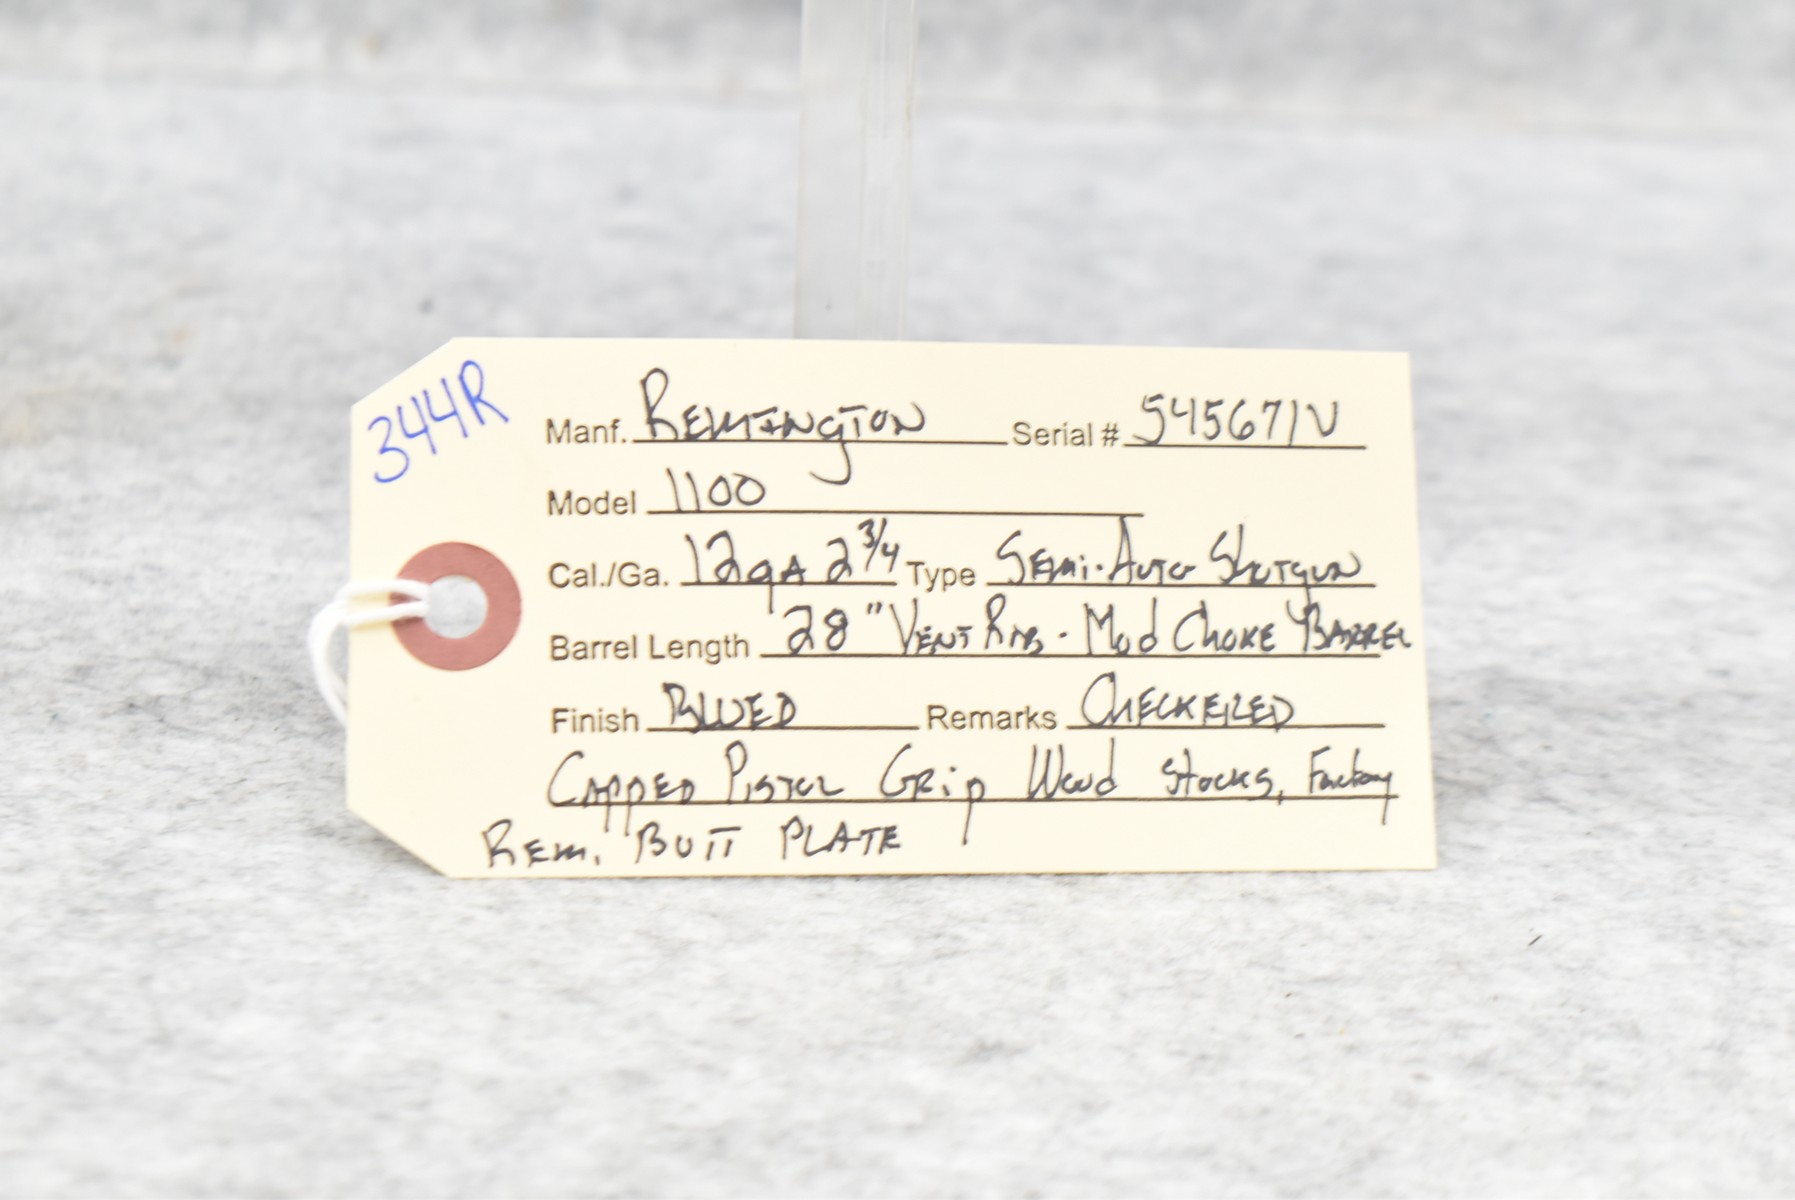 344R
Manf. Remington Serial # 545671V
Model 1100
Cal./Ga. 12ga 2 3/4 Type Semi-Auto Shotgun
Barrel Length 28" Vent Rib - Mod Choke Barrel
Finish Blued Remarks Checkered
Capped Pistol Grip Wood Stocks, Factory
Rem. Butt Plate